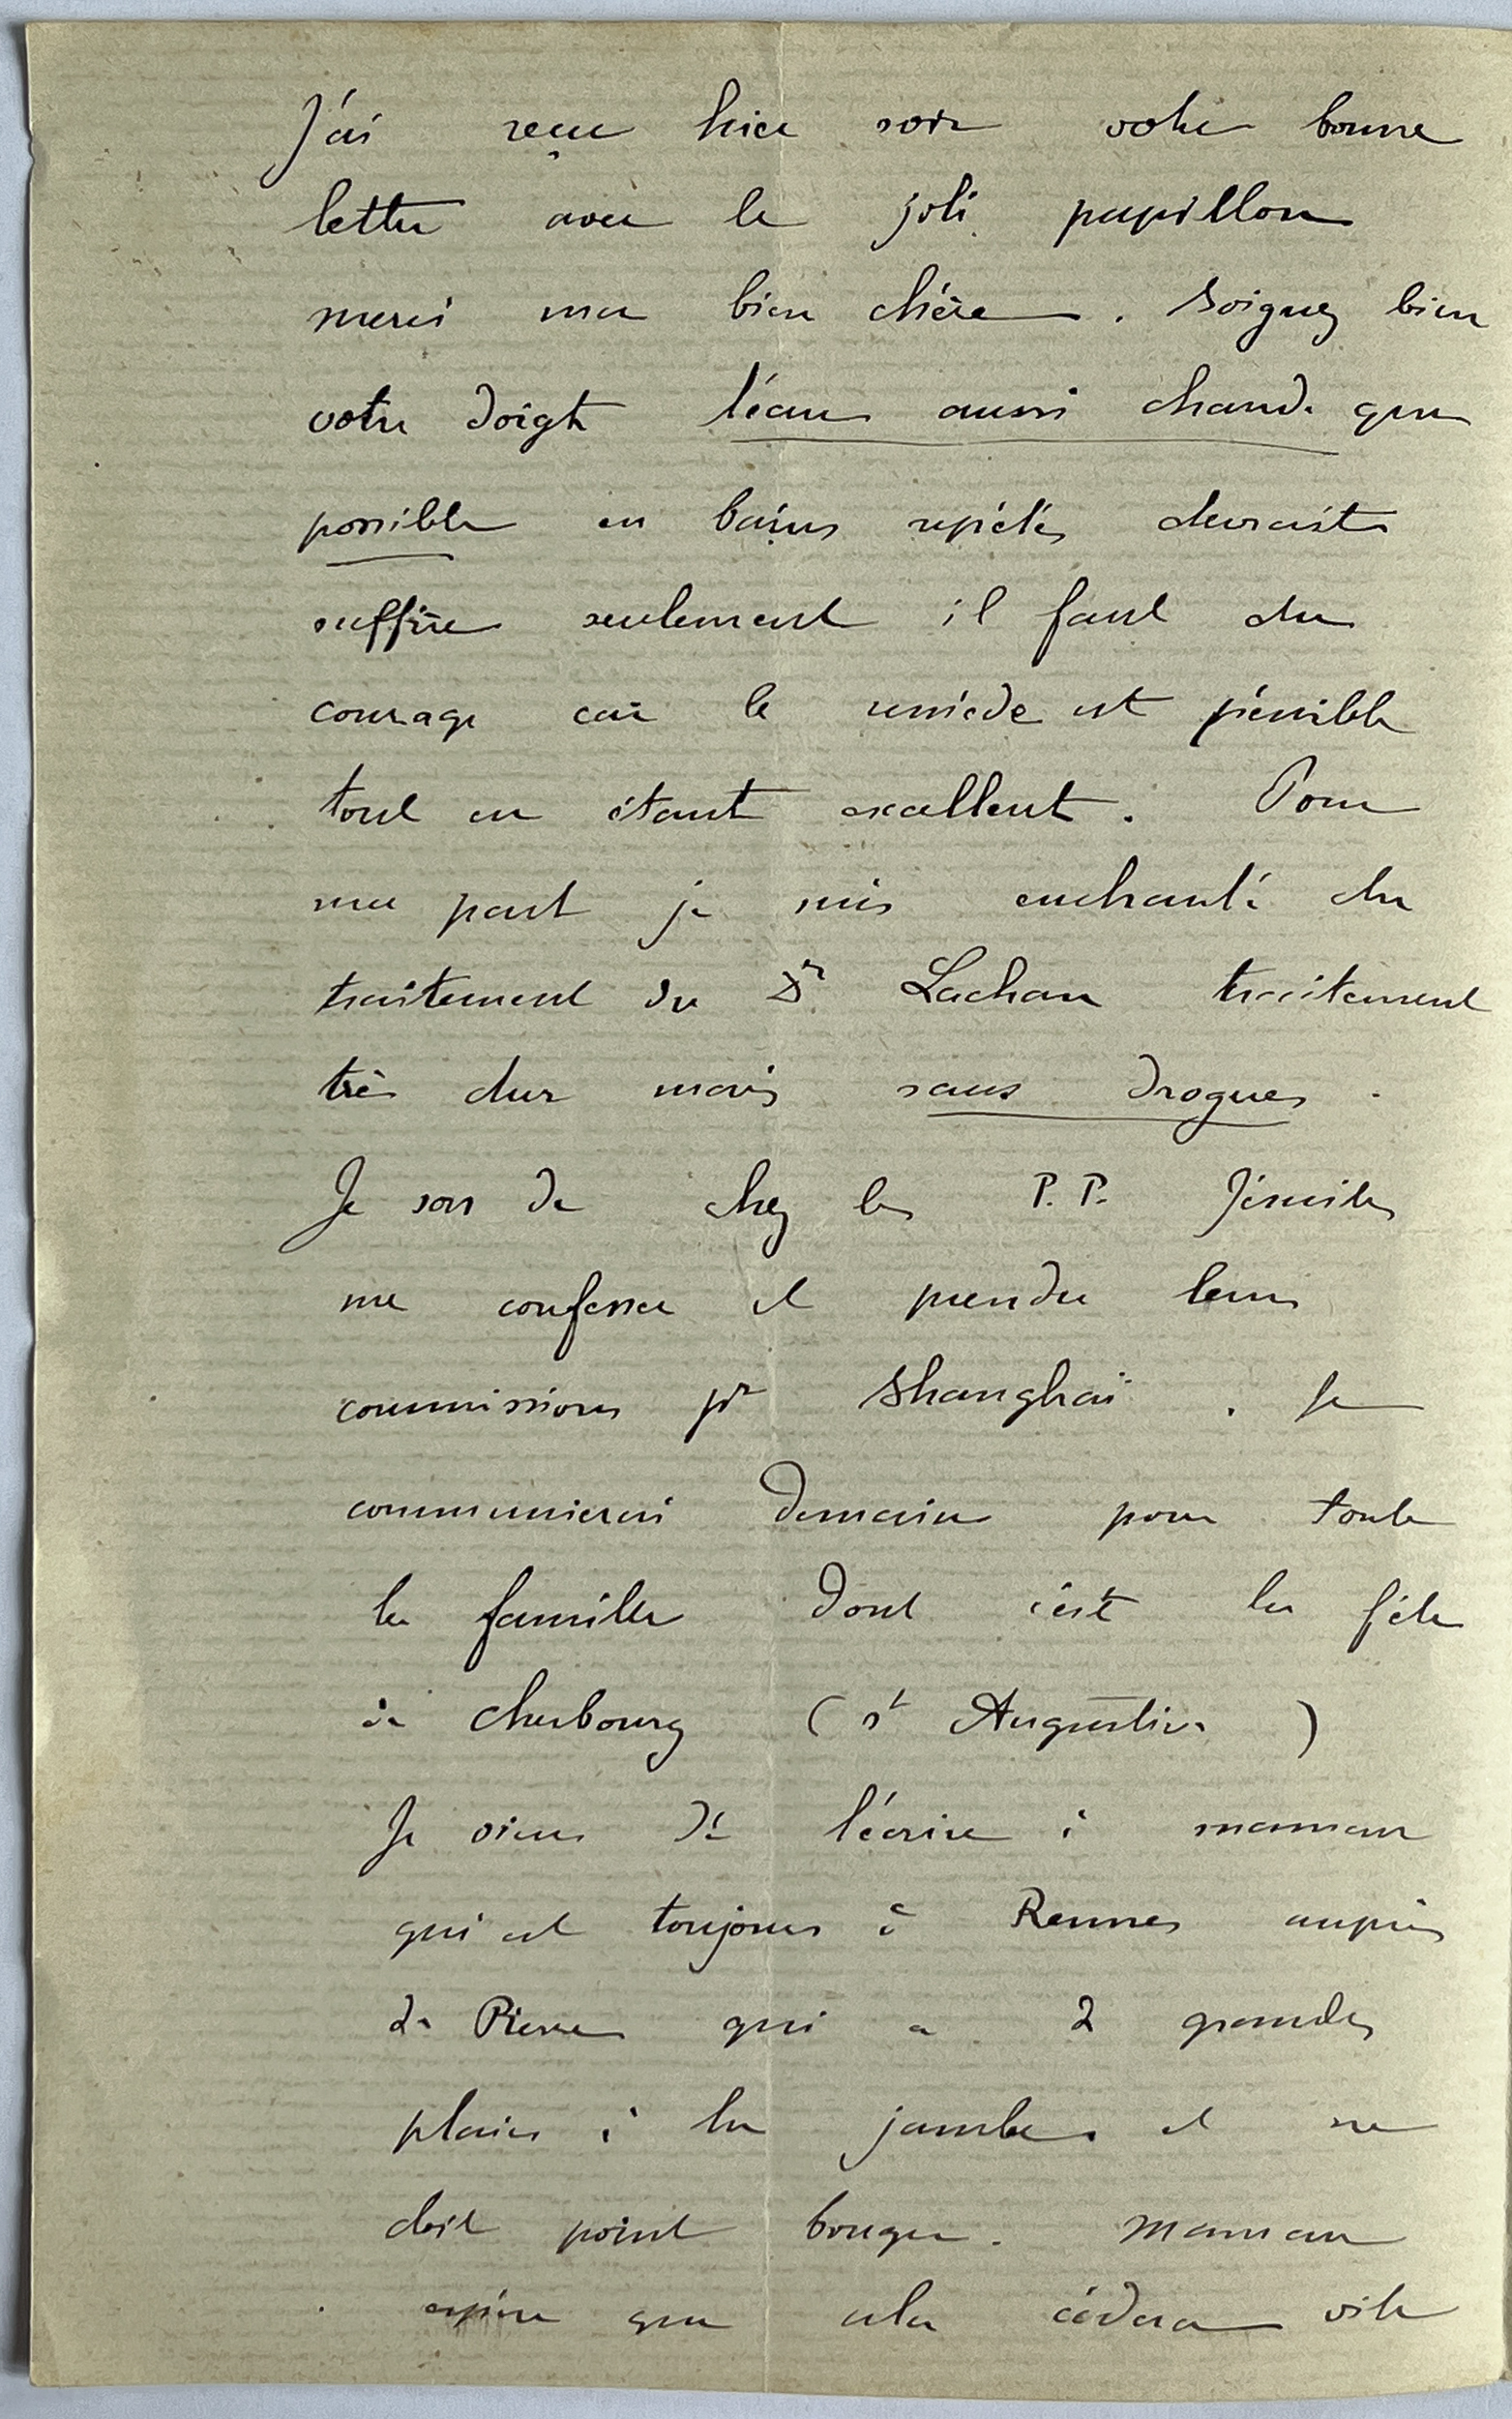 J'ai reçu hier soir votre bonne
lettre avec le joli papillon
merci ma bien chère. Soignez bien
votre doigt l'eau aussi chaude que
possible en bains répétés devrait
suffire seulement il faut du
courage car le remède est pénible
tout en étant excellent. Pour
ma part je suis enchanté du
traitement du Dr Lachan traitement
très dur mais sans drogues.
Je sors de chez les P.P. Jésuites
me confesser et prendre leurs
commissions pr Shanghaï. Je
communierai demain pour toute
la famille dont c'est la fête
à Cherbourg (st Augustin)
Je viens de l'écrire à maman
qui est toujours à Rennes auprès
de Pierre qui a 2 grandes
plaies à la jambe et ne
doit point bouger. Maman
espère que cela cèdera vite